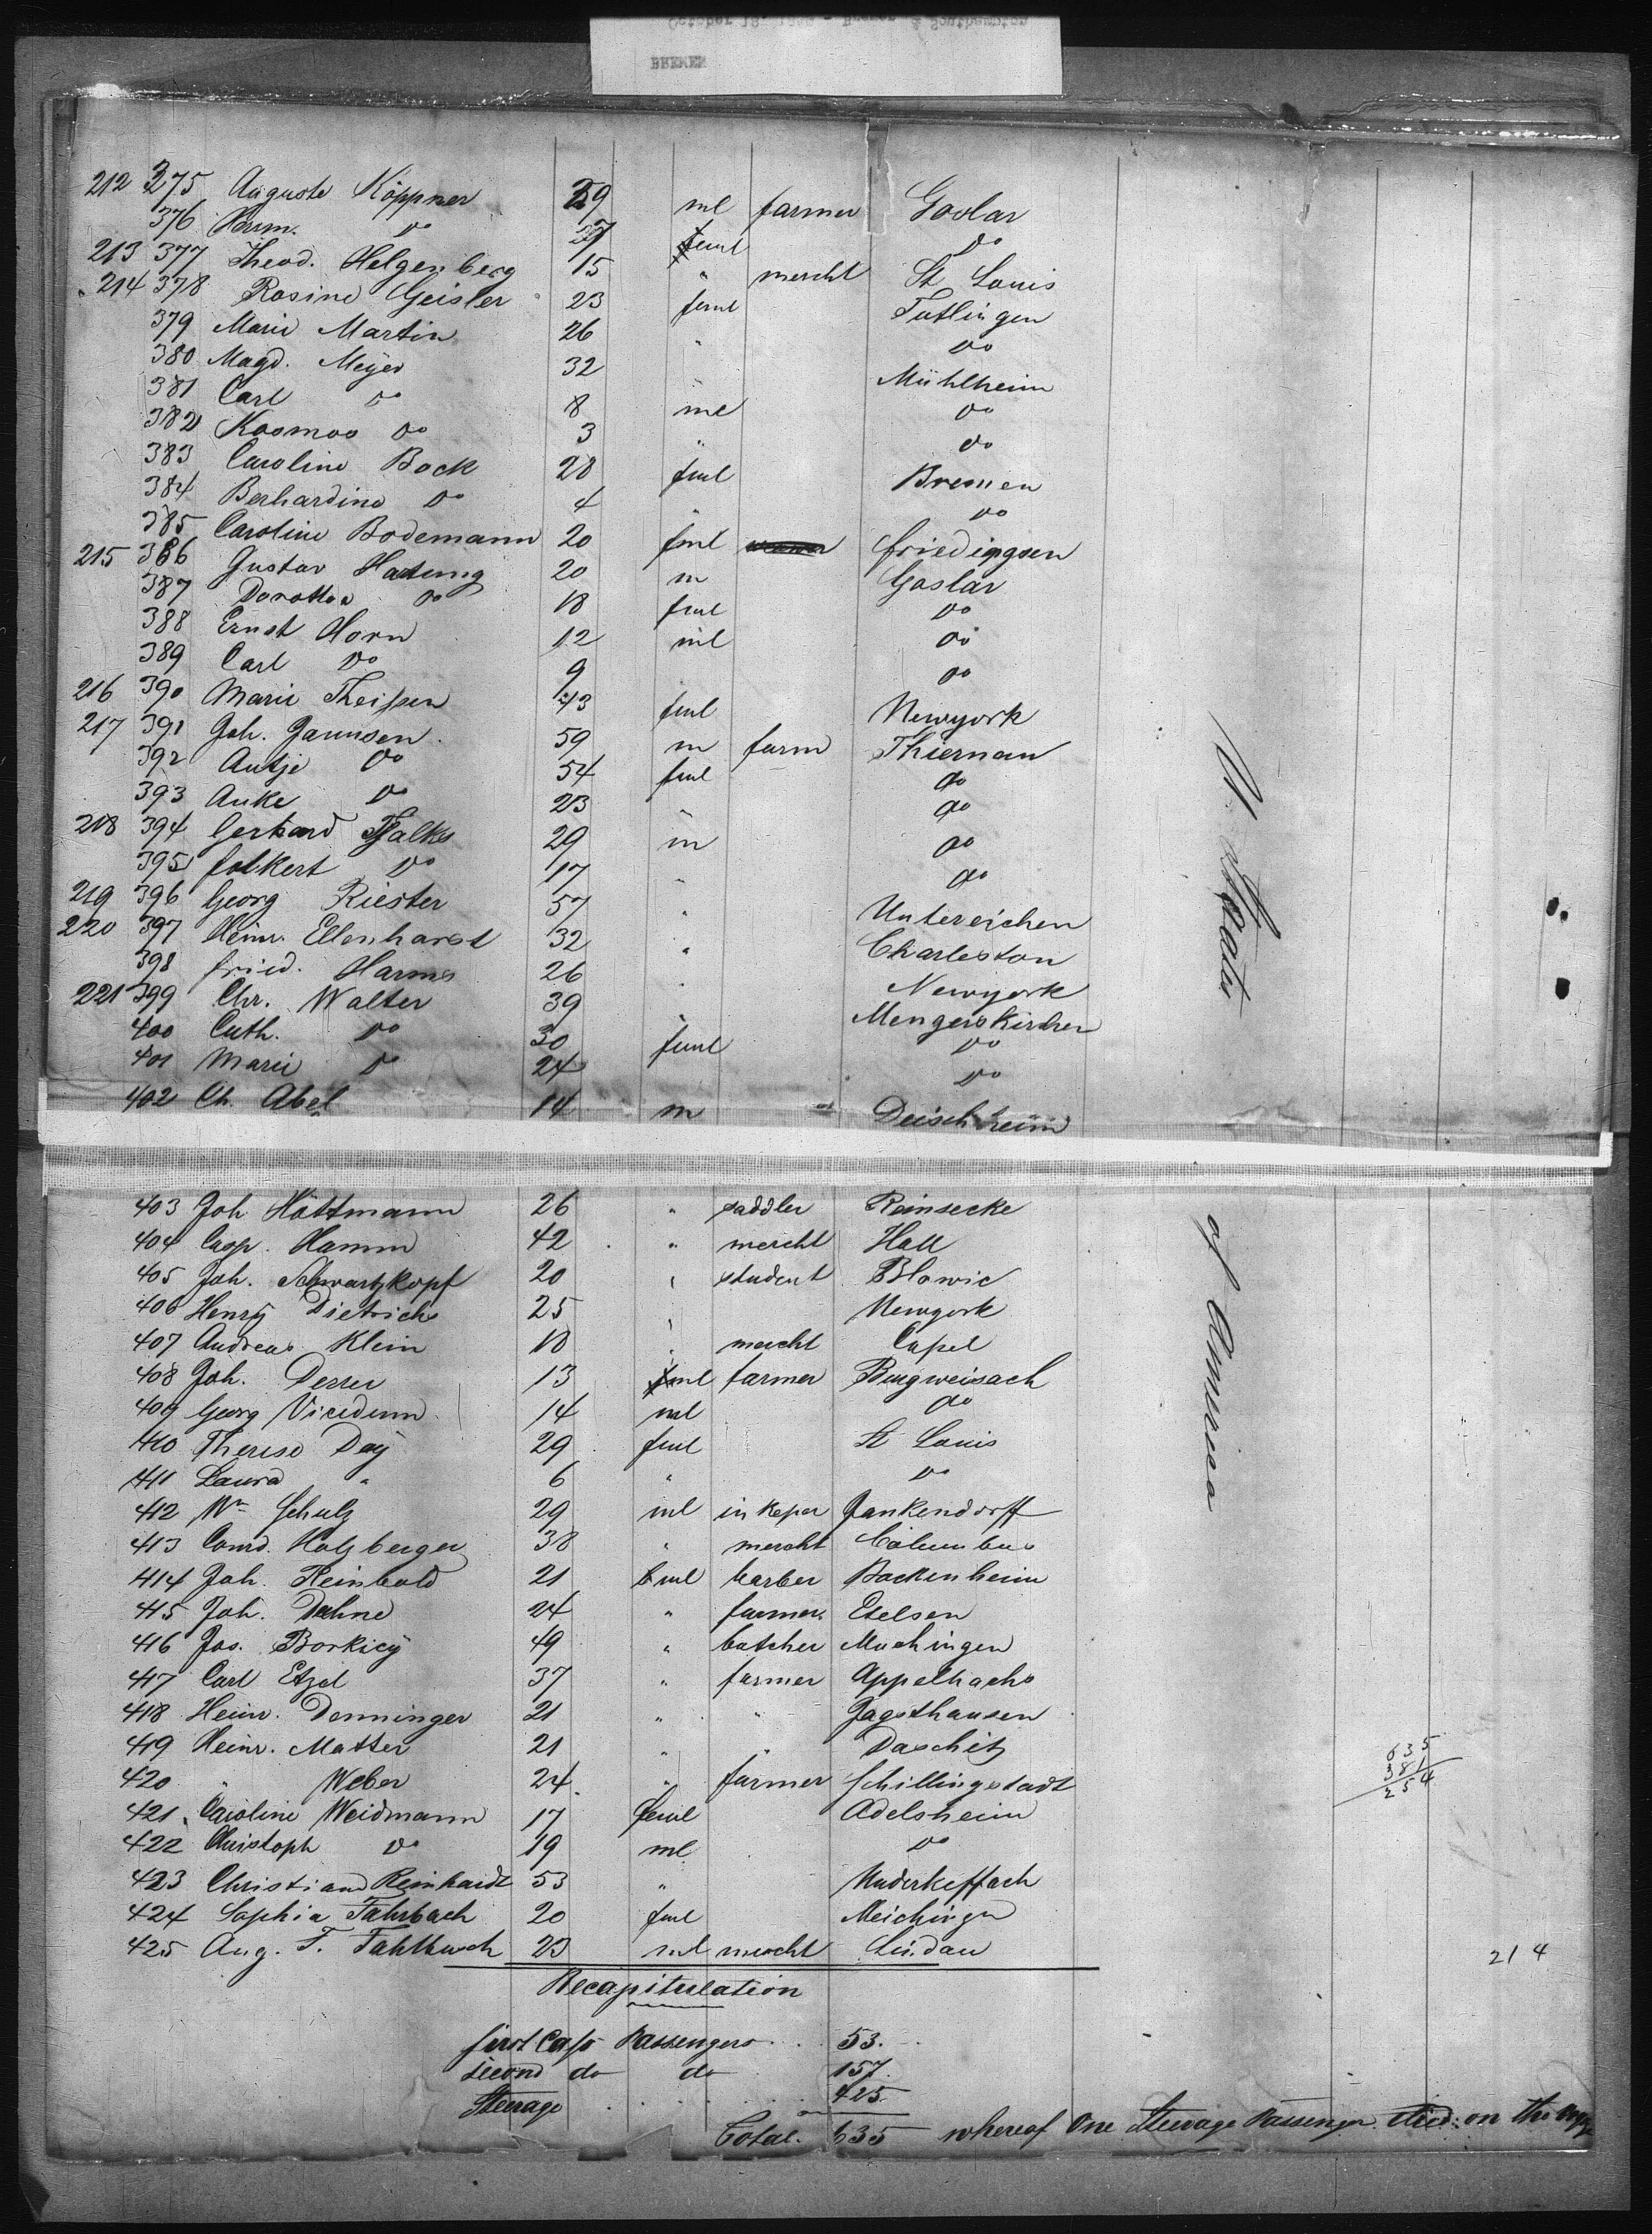 BREMEN
212 375 Auguste Köppner 29 ml farmer Goslar
376 Herm. do 27 feml do
213 377 Theod. Helgenberg 15 " mercht St Louis
214 378 Rosine Geisler 23 feml Tutlingen
379 Marie Martin 26 " do
380 Magd. Meyer 32 " Mühlheim
381 Carl do 8 ml do
382 Kosmos do 3 " do
383 Caroline Bock 28 feml Bremen
384 Berhardine do 4 " do
385 Caroline Bodemann 20 feml Friedingsen
215 386 Gustav Hartung 20 m Goslar
387 Dorothea do 18 feml do
388 Ernst Horn 12 ml do
389 Carl do 9 " do
216 390 Marie Theissen 43 feml Newyork
217 391 Joh. Jannsen 59 m farm Thiernau
392 Antje do 54 feml do
393 Anke do 23 " do
218 394 Gerhard Falks 29 m do
395 Folkert do 17 " do
219 396 Georg Riester 57 " Untereichen
220 397 Heinr. Ellenhorst 32 " Charleston
398 Fried. Harms 26 " Newyork
221 399 Chr. Walter 39 " Mengerskirchen
400 Cath. do 30 feml do
401 Marie do 24 do
402 Ch. Abel 14 m Deischheim
U. States
403 Joh Höttmann 26 " saddler Reinsecke
404 Casp. Hamm 42 " mercht Hall
405 Joh. Schwartzkopf 20 " student Blowic
406 Henry Dietrichs 25 " Newyork
407 Andreas Klein 18 " mercht Capel
408 Joh. Derrer 13 ml farmer Burgweisach
409 Georg Vicedum 14 ml do
410 Therese Day 29 feml St Louis
411 Laura " 6 " do
412 Wm Schulz 29 ml inkeper Jankendorff
413 Conrd. Holzberger 38 " mercht Columbus
414 Joh. Reinbold 21 ml barber Bockenheim
415 Joh. Dehne 24 " farmer Etelsen
416 Jos. Borkicy 49 " butcher Mochingen
417 Carl Etzel 37 " farmer Appelhachs
418 Heinr. Denninger 21 " " Jagsthausen
419 Heinr. Matter 21 " " Daschitz
420 " Weber 24 " farmer Schillingstadt
421 Caroline Weidmann 17 feml Adelsheim
422 Christoph do 19 ml do
423 Christiane Reinhardt 53 " Underkeffach
424 Sophia Fahrbach 20 feml Meichingen
425 Aug. F. Fahlbusch 23 ml mercht Lindau
of America
635
381
254
214
Recapitulation
first Class Passengers 53.
second do do 157.
Steerage 425.
Total. 635 whereof One Steerage Passenger died on the